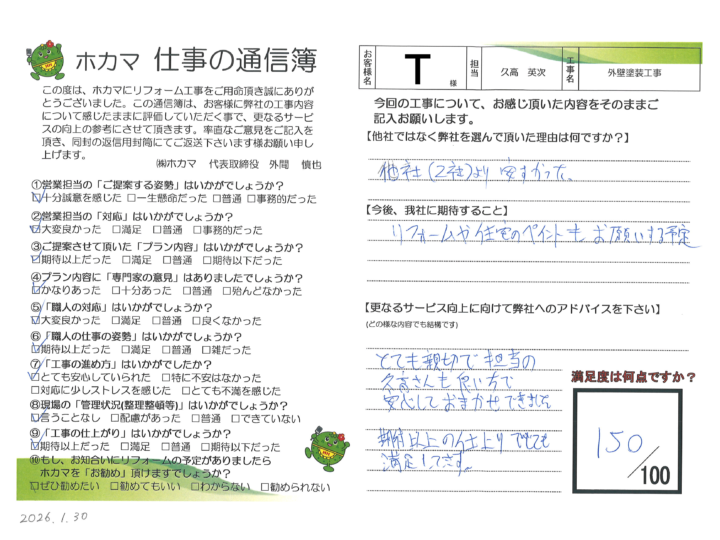 ホカマ 仕事の通信簿
この度は、ホカマにリフォーム工事をご用命頂き誠にありが
とうございました。この通信簿は、お客様に弊社の工事内容
について感じたままに評価していただく事で、更なるサービ
スの向上の参考にさせて頂きます。率直なご意見をご記入を
頂き、同封の返信用封筒にてご返送下さいます様お願い申し
上げます。
㈱ホカマ 代表取締役 外間 慎也
①営業担当の「ご提案する姿勢」はいかがでしょうか?
☑十分誠意を感じた □一生懸命だった □普通 □事務的だった
②営業担当の「対応」はいかがでしょうか?
☑大変良かった □満足 □普通 □事務的だった
③ご提案させて頂いた「プラン内容」はいかがでしょうか?
☑期待以上だった □満足 □普通 □期待以下だった
④プラン内容に「専門家の意見」はありましたでしょうか?
☑かなりあった □十分あった □普通 □殆んどなかった
⑤「職人の対応」はいかがでしょうか?
☑大変良かった □満足 □普通 □良くなかった
⑥「職人の仕事の姿勢」はいかがでしょうか?
☑期待以上だった □満足 □普通 □雑だった
⑦「工事の進め方」はいかがでしたか?
☑とても安心していられた □特に不安はなかった
□対応に少しストレスを感じた □とても不満を感じた
⑧現場の「管理状況(整理整頓等)」はいかがでしょうか?
☑言うことなし □配慮があった □普通 □できていない
⑨「工事の仕上がり」はいかがでしょうか?
☑期待以上だった □満足 □普通 □期待以下だった
⑩もし、お知合いにリフォームの予定がありましたら
ホカマを「お勧め」頂けますでしょうか?
☑ぜひ勧めたい □勧めてもいい □わからない □勧められない
2026.1.30
お客様名 T 様 担当 久高 英次 工事名 外壁塗装工事
今回の工事について、お感じ頂いた内容をそのままご
記入お願いします。
【他社ではなく弊社を選んで頂いた理由は何ですか?】
他社(2社)より安すかった。
【今後、我社に期待すること】
リフォームや住宅のペイントもお願いする予定
【更なるサービス向上に向けて弊社へのアドバイスを下さい】
(どの様な内容でも結構です)
とても親切で担当の
久高さんも良い方で
安心しておまかせできました。
期待以上の仕上りでとても
満足してます。
満足度は何点ですか?
150/100